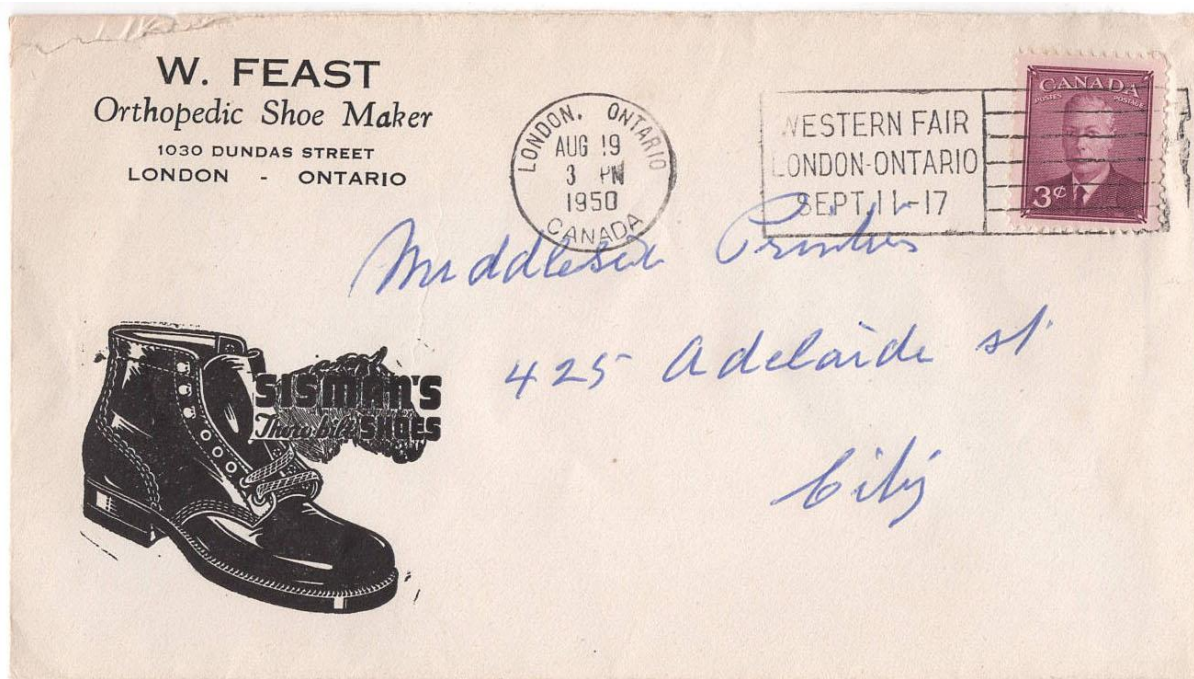 W. FEAST
Orthopedic Shoe Maker
1030 DUNDAS STREET
LONDON - ONTARIO
LONDON, ONTARIO
AUG 19
3 PM
1950
CANADA
WESTERN FAIR
LONDON-ONTARIO
SEPT. 11-17
CANADA
POSTES POSTAGE
3¢
Middlesex Printers
425 Adelaide St
City
SISMAN'S
Thoro-bilt SHOES